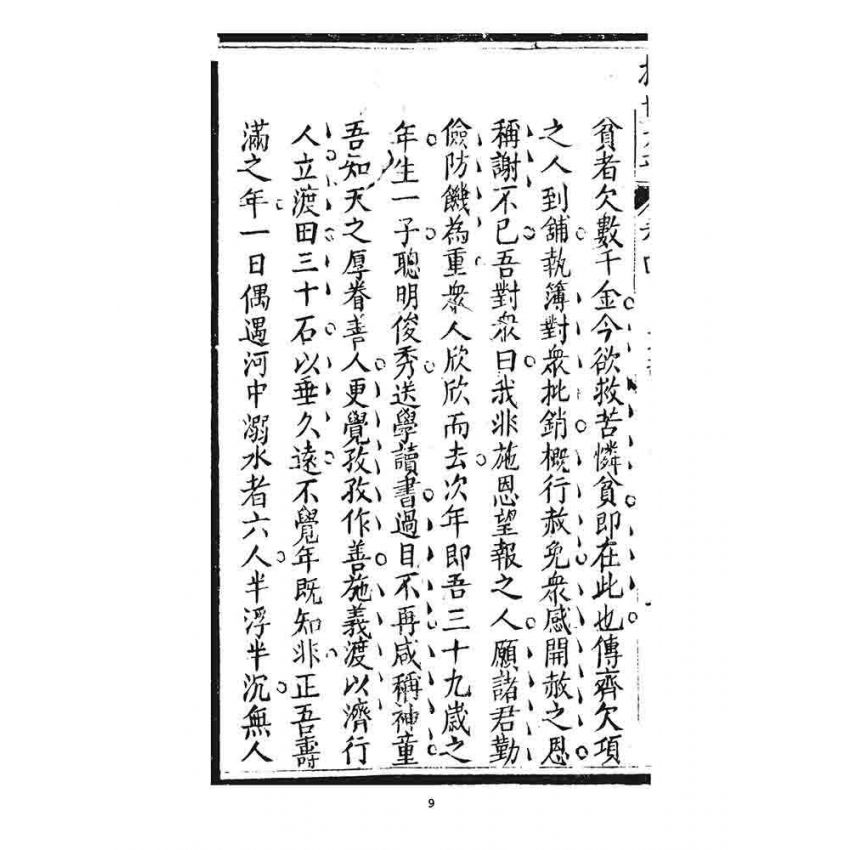 貧者欠數千金今欲救苦憐貧即在此也傳齊欠項
之人到舖執簿對衆批銷概行赦免衆感開赦之恩
稱謝不已吾對衆曰我非施恩望報之人願諸君勤
儉防饑為重衆人欣欣而去次年即吾三十九歲之
年生一子聰明俊秀送學讀書過目不再咸稱神童
吾知天之厚眷善人更覺孜孜作善施義渡以濟行
人立渡田三十石以垂久遠不覺年既知非正吾壽
滿之年一日偶遇河中溺水者六人半浮半沉無人
9